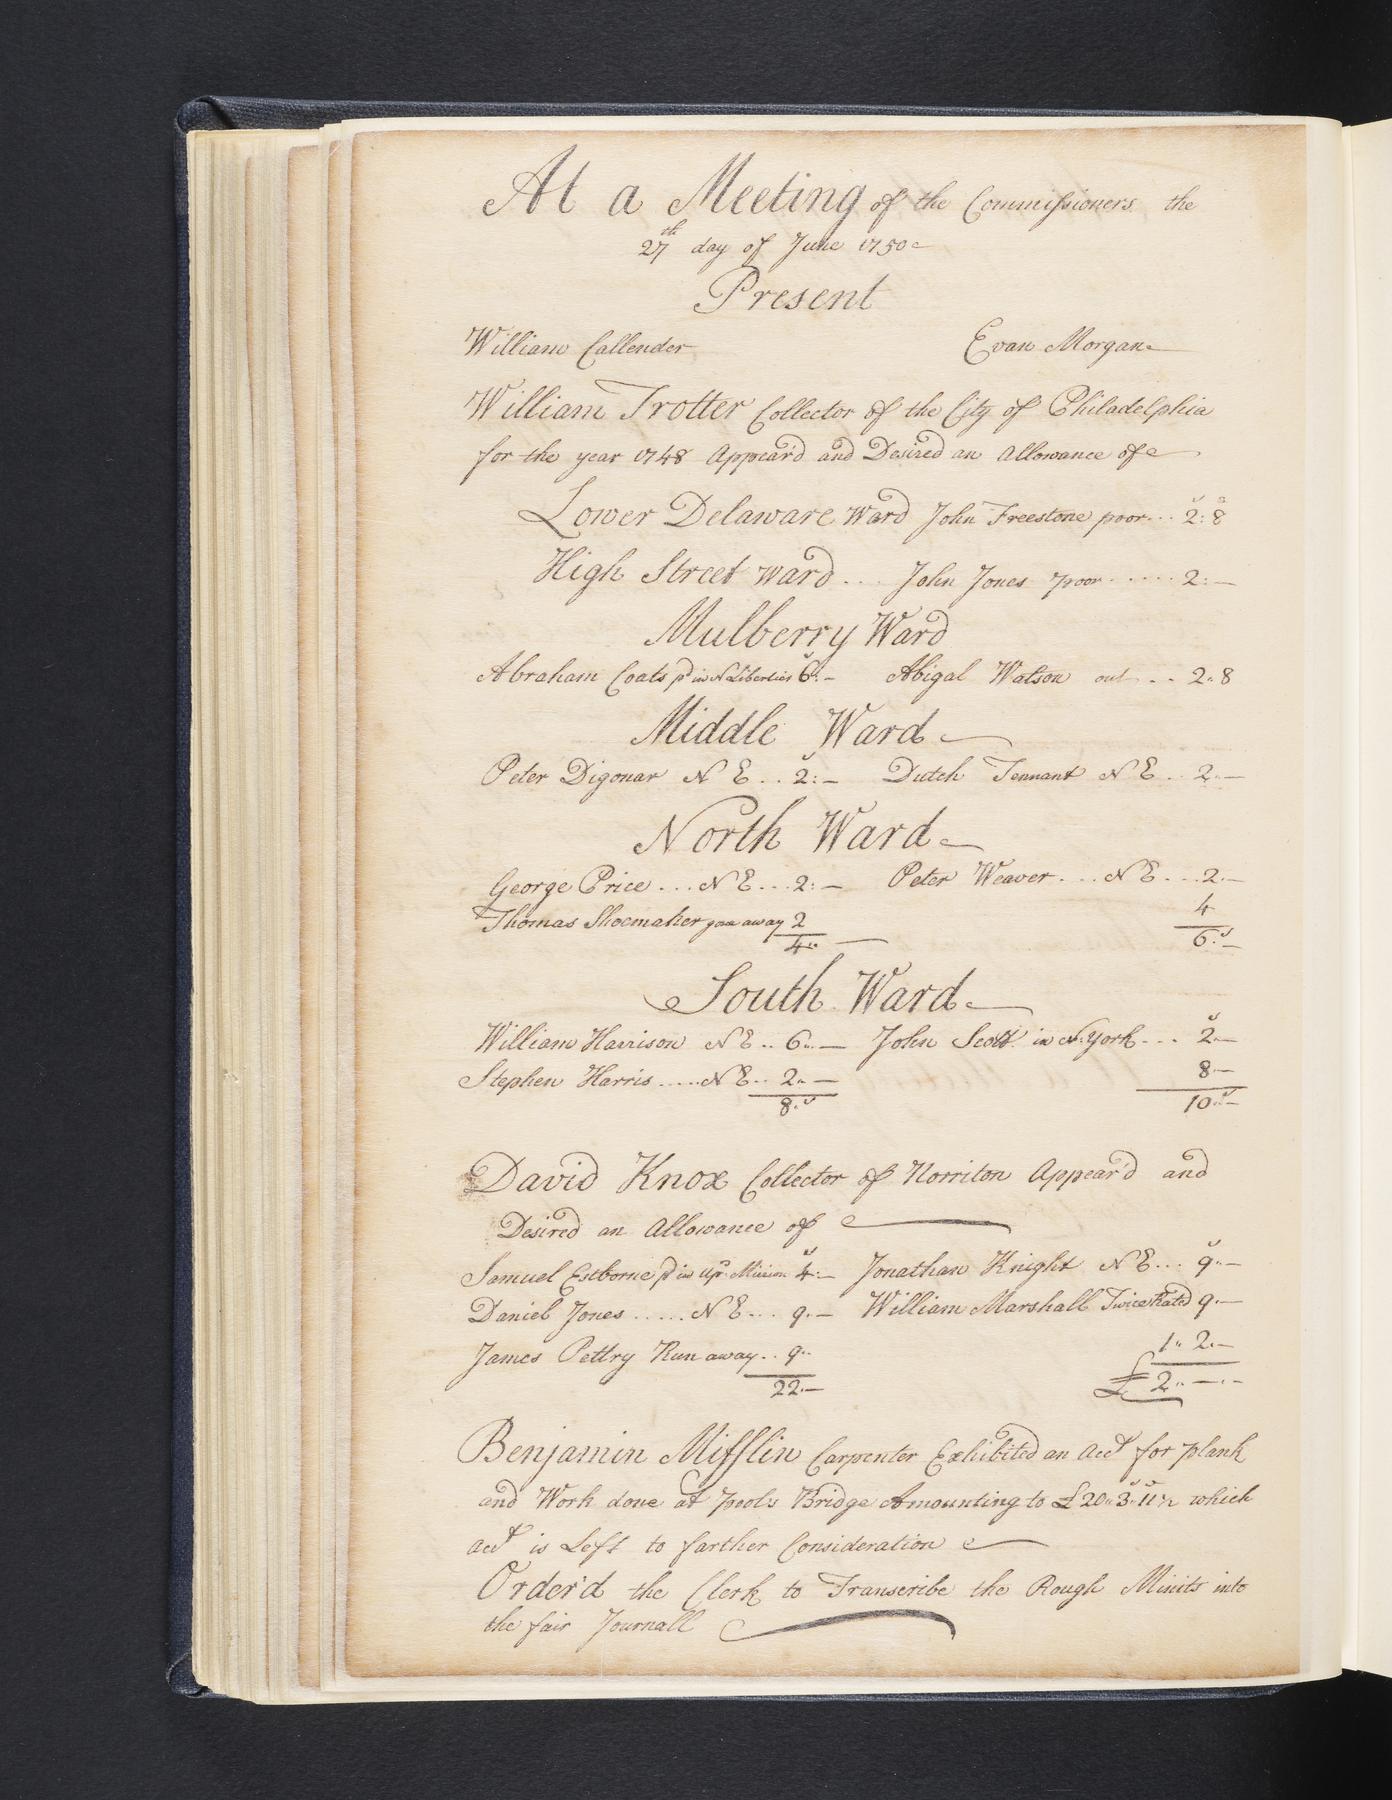 At a Meeting of the Commissioners the
27th day of June 1750
Present
William Callender Evan Morgan
William Trotter Collector of the City of Philadelphia
for the year 1748 Appear'd and Desired an Allowance of
Lower Delaware Ward John Freestone poor... 2:8
High Street Ward.... John Jones poor..... 2:—
Mulberry Ward
Abraham Coats pd in N Liberties 6:— Abigal Watson out... 2"8
Middle Ward
Peter Digonar N E.. 2:— Dutch Tennant N E.. 2"—
North Ward
George Price... N E... 2:— Peter Weaver.... N E... 2.—
Thomas Shoemaker gone away 2 4
4" — 6"—
South Ward
William Harrison N E.. 6"— John Scott in N:York... 2"—
Stephen Harris..... N E.. 2"— 8—
8" 10"—
David Knox Collector of Norriton Appear'd and
Desired an Allowance of
Samuel Estborne pd in upr. Merion 4:— Jonathan Knight N E... 9"—
Daniel Jones...... N E... 9.— William Marshall Twice Rated 9.—
James Pettry Run away.. 9" 1" 2.—
22.— £ 2"—"—
Benjamin Mifflin Carpenter Exhibited an Acct for plank
and Work done at pools Bridge Amounting to £20"3"11½ which
acct is Left to farther Consideration
Order'd the Clerk to Transcribe the Rough Minits into
the fair Journall